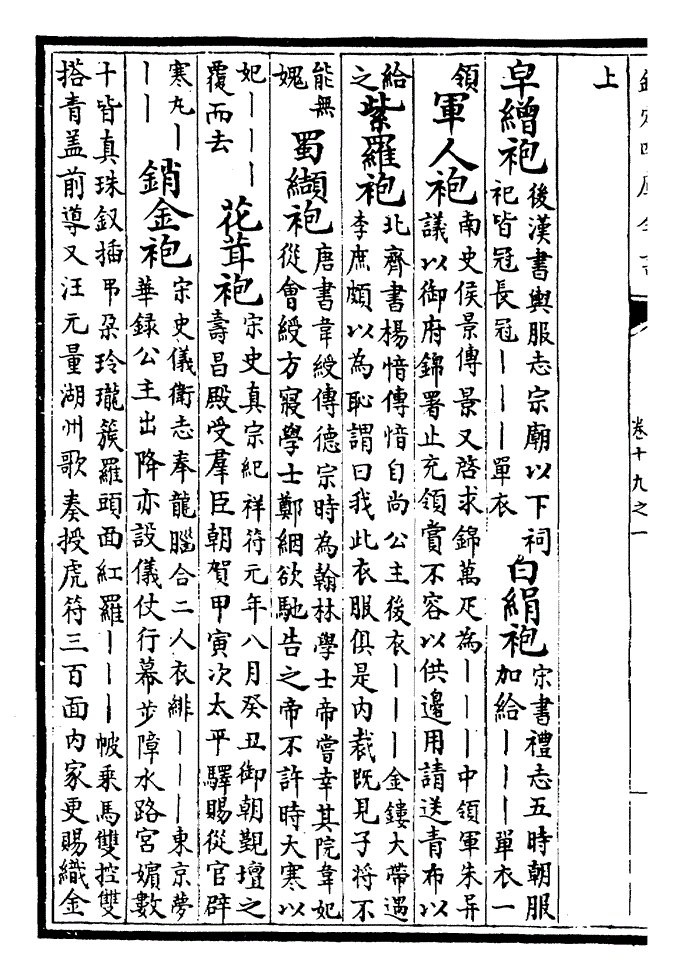 卷十九之一
上
皁繒袍
後漢書輿服志宗廟以下祠
祀皆冠長冠｜｜｜單衣
白絹袍
宋書禮志五時朝服
加給｜｜｜單衣一
領
軍人袍
南史侯景傳景又啓求錦萬疋為｜｜｜中領軍朱异
議以御府錦署止充領賞不容以供邊用請送青布以
給
之
紫羅袍
北齊書楊愔傳愔自尚公主後衣｜｜｜金鏤大帶遇
李庶頗以為恥謂曰我此衣服俱是内裁既見子將不
能無
媿
蜀纈袍
唐書韋綬傳德宗時為翰林學士帝嘗幸其院韋妃
從會綬方寢學士鄭絪欲馳告之帝不許時大寒以
妃｜｜｜
覆而去
花茸袍
宋史真宗紀祥符元年八月癸丑御朝覲壇之
壽昌殿受羣臣朝賀甲寅次太平驛賜從官辟
寒丸｜
｜｜
銷金袍
宋史儀衛志奉龍腦合二人衣緋｜｜｜東京夢
華録公主出降亦設儀仗行幕步障水路宮媚數
十皆真珠釵插吊朶玲瓏簇羅頭面紅羅｜｜｜帔乘馬雙控雙
搭青盖前導又汪元量湖州歌奏授虎符三百面内家更賜織金